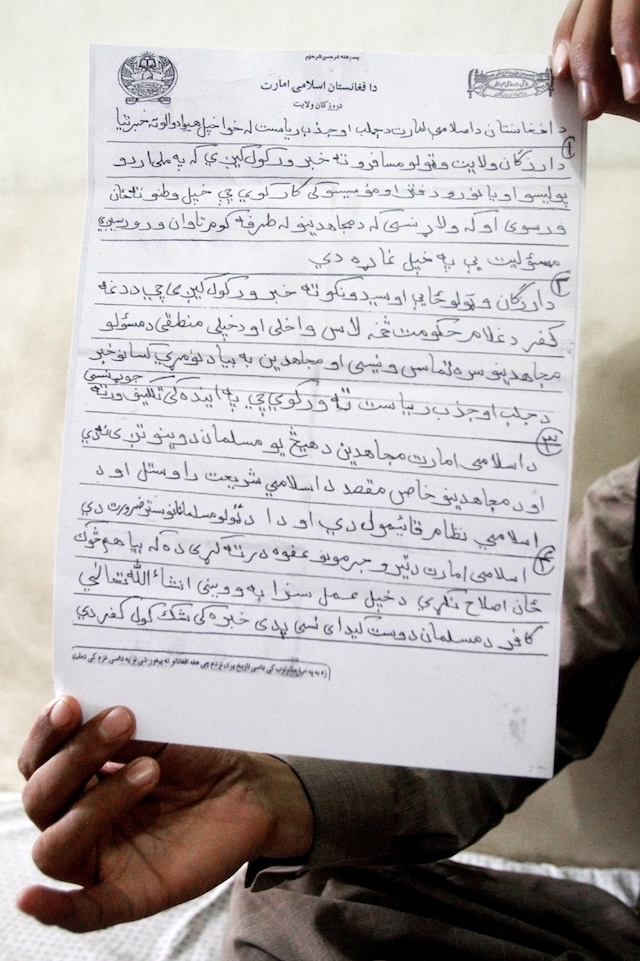 بسم الله الرحمن الرحيم
دا فغانستان اسلامی امارت
دروزگان ولایت
د افغانستان د اسلامي امارت د جلب او جذب ریاست له خوا خپل هیوادوالو ته خبرتیا
۱
دارزگان ولایت وټولو مسافرو ته خبر ورکول کیږي که په ملي اردو
پولیسو او یا نورو دفترو او مؤسسو کی کار کوي چي خپل وطنو ته ځان
ورسوی او که ولاړ نسی که د مجاهدینو له طرفه کوم تاوان ورورسیږي
مسئولیت یې په خپل غاړه دي
۲
دارزگان وټولو ځایي اوسیدونکو ته خبر ورکول کیږی چي ددغه
کفر د غلام حکومت څخه لاس واخلی او د خپلی منطقی د مسئولو
مجاهدینو سره تماس ونیسی او مجاهدین به بیا د نوموړي کسانو خبر
د جلب او جذب ریاست ته ورکوي چي په آینده کی تکلیف ورته
جوړ نسی
۳
د اسلامی امارت مجاهدین د هیڅ یو مسلمان د وینو تږی نه دي
او د مجاهدینو خاص مقصد د اسلامي شریعت راوستل او د
اسلامي نظام قائیمول دي او دا د ټولو مسلمانانو ستر ضرورت دي
۴
اسلامی امارت د ډیرو جرمونو عفوه درته کړی ده که بیا هم څوک
ځان اصلاح نکړي د خپل عمل سزا به وویني انشاءالله تعالی
کافر د مسلمان دوست کیدای نسی پدی خبره کی شک کول کفر دي